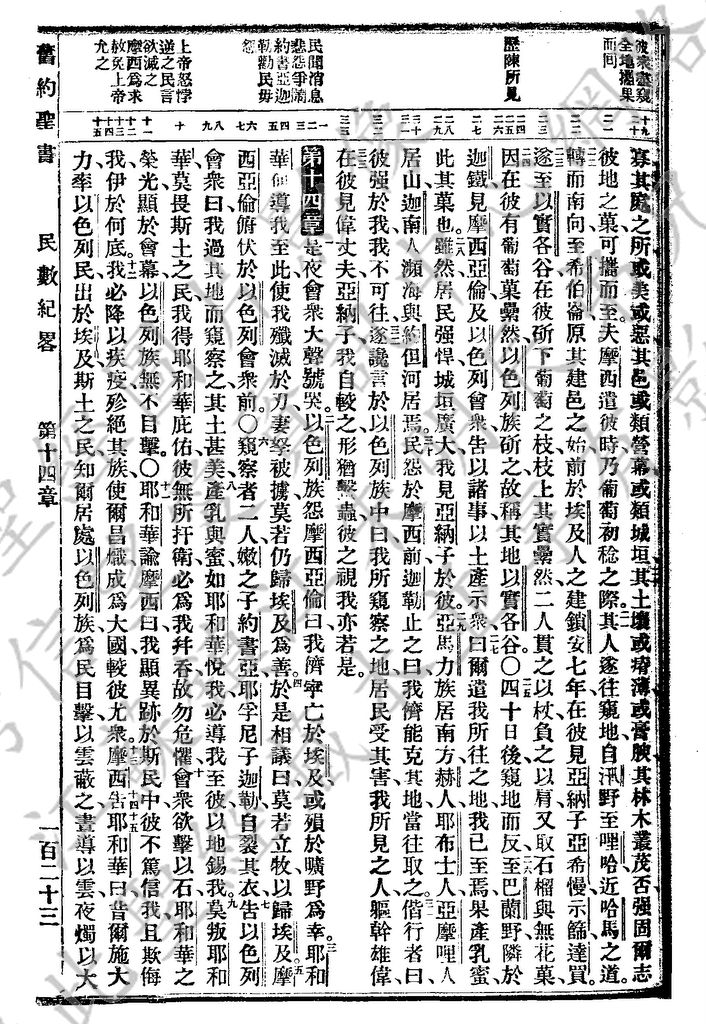 舊約聖書 民數紀畧 第十四章 一百二十三
彼衆盡窺
全地攜果
而回
歷陳所見
民聞消息
悲怨爭鬧
約書亞迦
勒勸民毋
怨
上帝怒悖
逆之民言
欲滅之
摩西爲求
赦免上帝
允之
寡其處之所或美或惡其邑或類營幕或類城垣其土壤或瘠薄或膏腴其林木叢茂否强固爾志
彼地之菓可攜而至夫摩西遣彼時乃葡萄初稔之際其人遂往窺地自汛野至哩哈近哈馬之道
轉而南向至希伯崙原其建邑之始前於埃及人之建鎖安七年在彼見亞納子亞希慢示篩達買
遂至以實各谷在彼斫下葡萄之枝枝上其實纍然二人貫之以杖負之以肩又取石榴與無花菓
因在彼有葡萄菓纍然以色列族斫之故稱其地以實各谷〇四十日後窺地而反至巴蘭野隣於
迦鐵見摩西亞倫及以色列會衆告以諸事以土產示衆曰爾遣我所往之地我已至焉果產乳蜜
此其菓也雖然居民强悍城垣廣大我見亞納子於彼亞馬力族居南方赫人耶布士人亞摩哩人
居山迦南人瀕海與約但河居焉民怨於摩西前迦勒止之曰我儕能克其地當往取之偕行者曰
彼强於我我不可往遂讒言於以色列族中曰我所窺察之地居民受其害我所見之人軀幹雄偉
在彼見偉丈夫亞納子我自較之形猶螽蟲彼之視我亦若是
第十四章 是夜會衆大聲號哭以色列族怨摩西亞倫曰我儕寧亡於埃及或殞於曠野爲幸耶和
華何導我至此使我殲滅於刃妻孥被擄莫若仍歸埃及爲善於是相議曰莫若立牧以歸埃及摩
西亞倫俯伏於以色列會衆前〇窺察者二人嫩之子約書亞耶孚尼子迦勒自裂其衣告以色列
會衆曰我過其地而窺察之其土甚美產乳與蜜如耶和華悅我必導我至彼以地錫我莫叛耶和
華莫畏斯土之民我得耶和華庇佑彼無所扞衛必爲我幷吞故勿危懼會衆欲擊以石耶和華之
榮光顯於會幕以色列族無不目擊〇耶和華諭摩西曰我顯異跡於斯民中彼不篤信我且欺侮
我伊於何底我必降以疾疫殄絕其族使爾昌熾成爲大國較彼尤衆摩西告耶和華曰昔爾施大
力牽以色列民出於埃及斯土之民知爾居處以色列族爲民目擊以雲蔽之晝導以雲夜燭以火